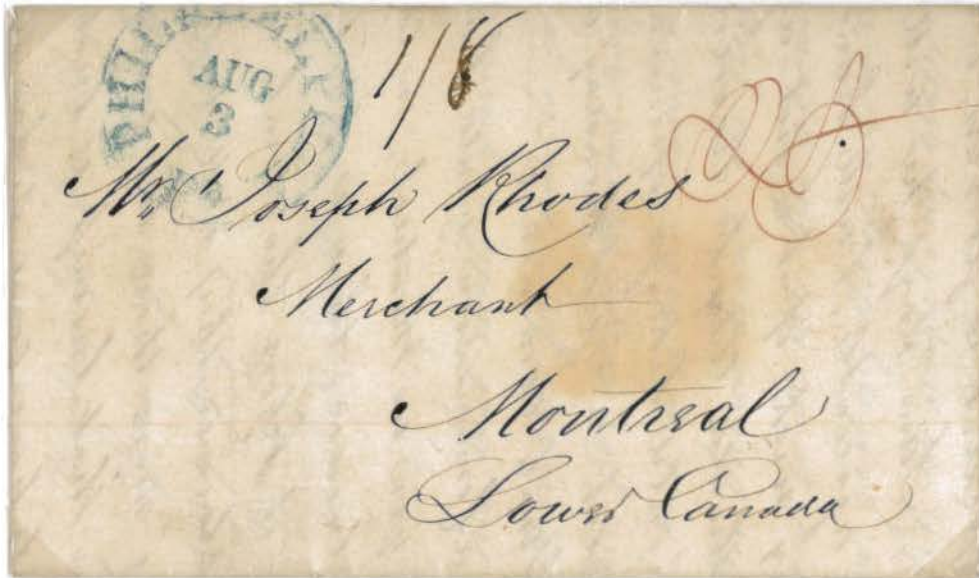 AUG
3
1/8
Mr. Joseph Rhodes
Merchant
Montreal
Lower Canada